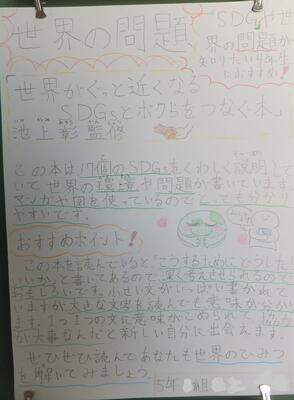 世界の問題、
SDGsや世
界の問題が
知りたい4年生
におすすめ!
「世界がぐっと近くなる
SDGsとボクらをつなぐ本」
池上彰 監修
この本は17個のSDGsをくわしく説明して
いて世界の環境や問題が書いています。
マンガや図を使っているのでとっても分かり
やすいです。
おすすめポイント!
この本を読んでいると「こうするためにどうしたら
いいか」と書いてあるので、深く考えさせられるので
おもしろいです。小さい文がいっぱい書かれて
いますが大きな文字を読んでも意味が分かり
ます。1つ1つの文に意味がこめられて
が大事なんだと新しい自分に出会えます。
ぜひぜひ読んであなたも世界のひみつ
を解いてみましょう。
5年 組